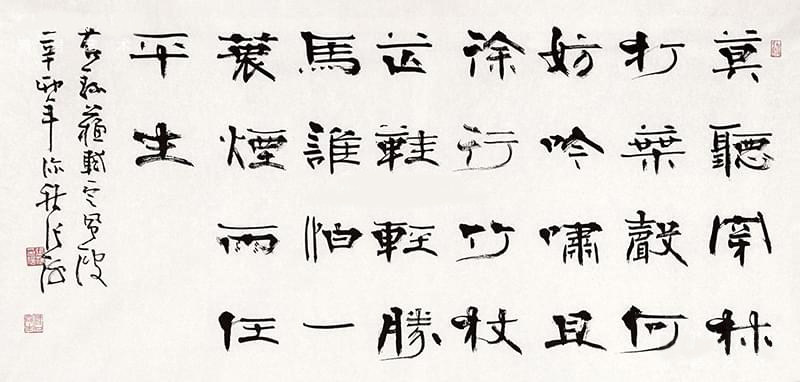 莫聽穿林
打葉聲何
妨吟嘯且
徐行竹杖
芒鞋輕勝
馬誰怕一
蓑煙雨任
平生
蘇軾定風波
辛卯年